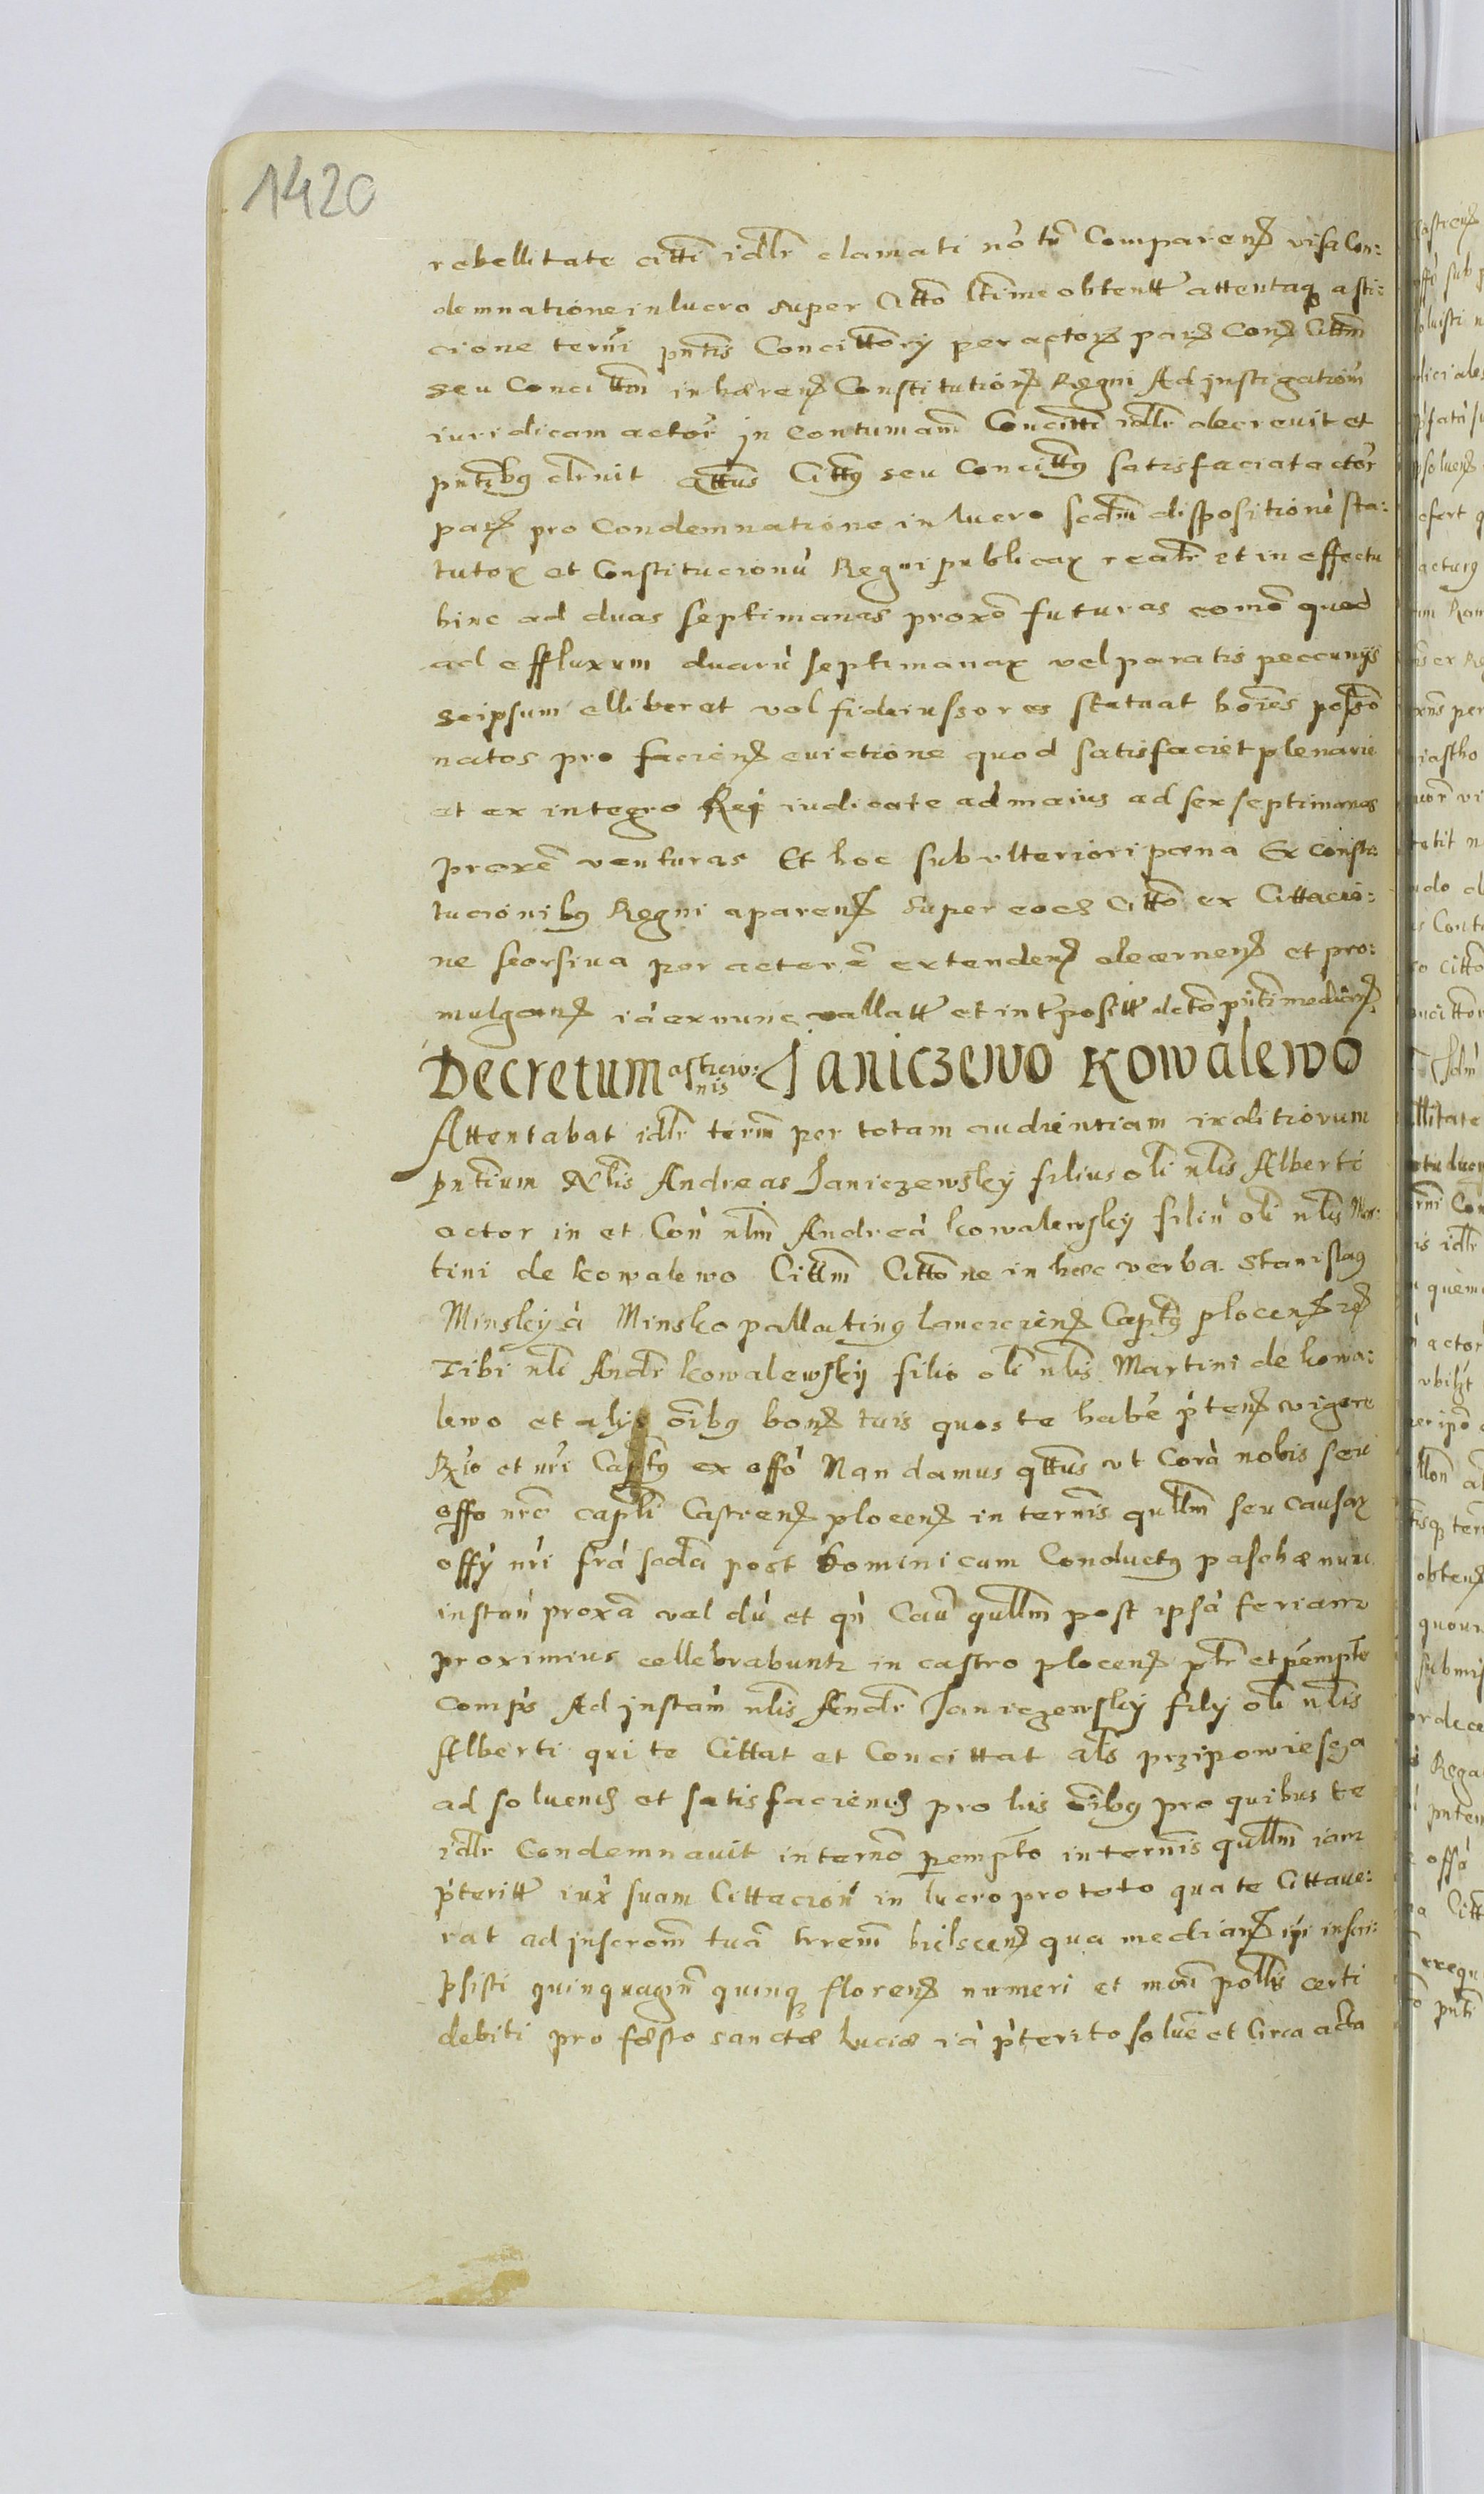 1420
rebellitate citti idlr clamati nō tn̄ Comparen̄ visa Con:
demnatione in lucro super Citto ltime obtentt attentaq asti:
cione termi pntis Concittory per actore pars Cons Cittm
seu Concittm inhæren Constitution Regni Ad instigationē
iuridicam actor in contumam Concitti idlr decreuit et
pntibg clruit qttus Cittg seu Concittg satisfaciat actor
pars pro Condemnatione in lucro scdm dispositionē sta:
tutor et Constitucionū Regni publicar realr et in effectu
hinc ad duas septimanas proxō futuras eomō quod
ad effluxum duarū septimanar vel paratis peccunijs
seipsum elliberet vel fideiussores statuat hoies posso
natos pro facien euictione quod satisfaciet plenarie
et ex integro Rei iudicate ad maius ad sex septimanas
proxē venturas Et hoc sub vlteriori pæna Ex consti:
tucionibg Regni aparen super eod Citto ex Cittacio:
ne seorsiua per actorē extenden decernen et pro:
mulgan iā exnunc vallatt et intpositt dcto pnti median
Decretum asticio:nis Janiczewo Kowalewo
Attentabat idlr term per totam audientiam iuditiorum
pntium Nlis Andreas Janiczewsky filius oli nlis Alberti
actor in et Con nlm Andreā Kowalewsky filiū oli nlis Mar:
tini de Kowalewo Cittm Cittone in hæc verba Stanislag
Minsky à Minsko pallating lancicien Captg plocen rē
Tibi nli Andr Kowalewsky filio oli nlis Martini de Kowa:
lewo et alijs oibg bon tuis quos te habe pten vigore
Rgio et nri Captg ex offo Mandamus qttus vt Corā nobis seu
offo nro capli Castren plocen in termis qullm seu causar
offy nri fra scda post Dominicam Conductg paschæ nunc
instan proxā vel dū et qn Cau qullm post ipsā feriam
proximius cellebrabuntr in castro plocen ptr et pempte
comps Ad instam nlis Andr Janiczewsky fily oli nlis
Alberti qui te Cittat et Concittat als przipowiescza
ad soluend et satisfaciend pro his oibg pro quibus te
idlr Condemnauit in termo pempto in termis qullm iam
pteritt iux suam Cittacion in lucro pro toto qua te Cittaue:
rat ad inscrom tuā trrem bielscen qua median ipi inscri:
psisti quinquagin quinq floren numeri et mon pollis certi
debiti pro fæsto sanctæ Luciæ iā pterito solue et Circa acta